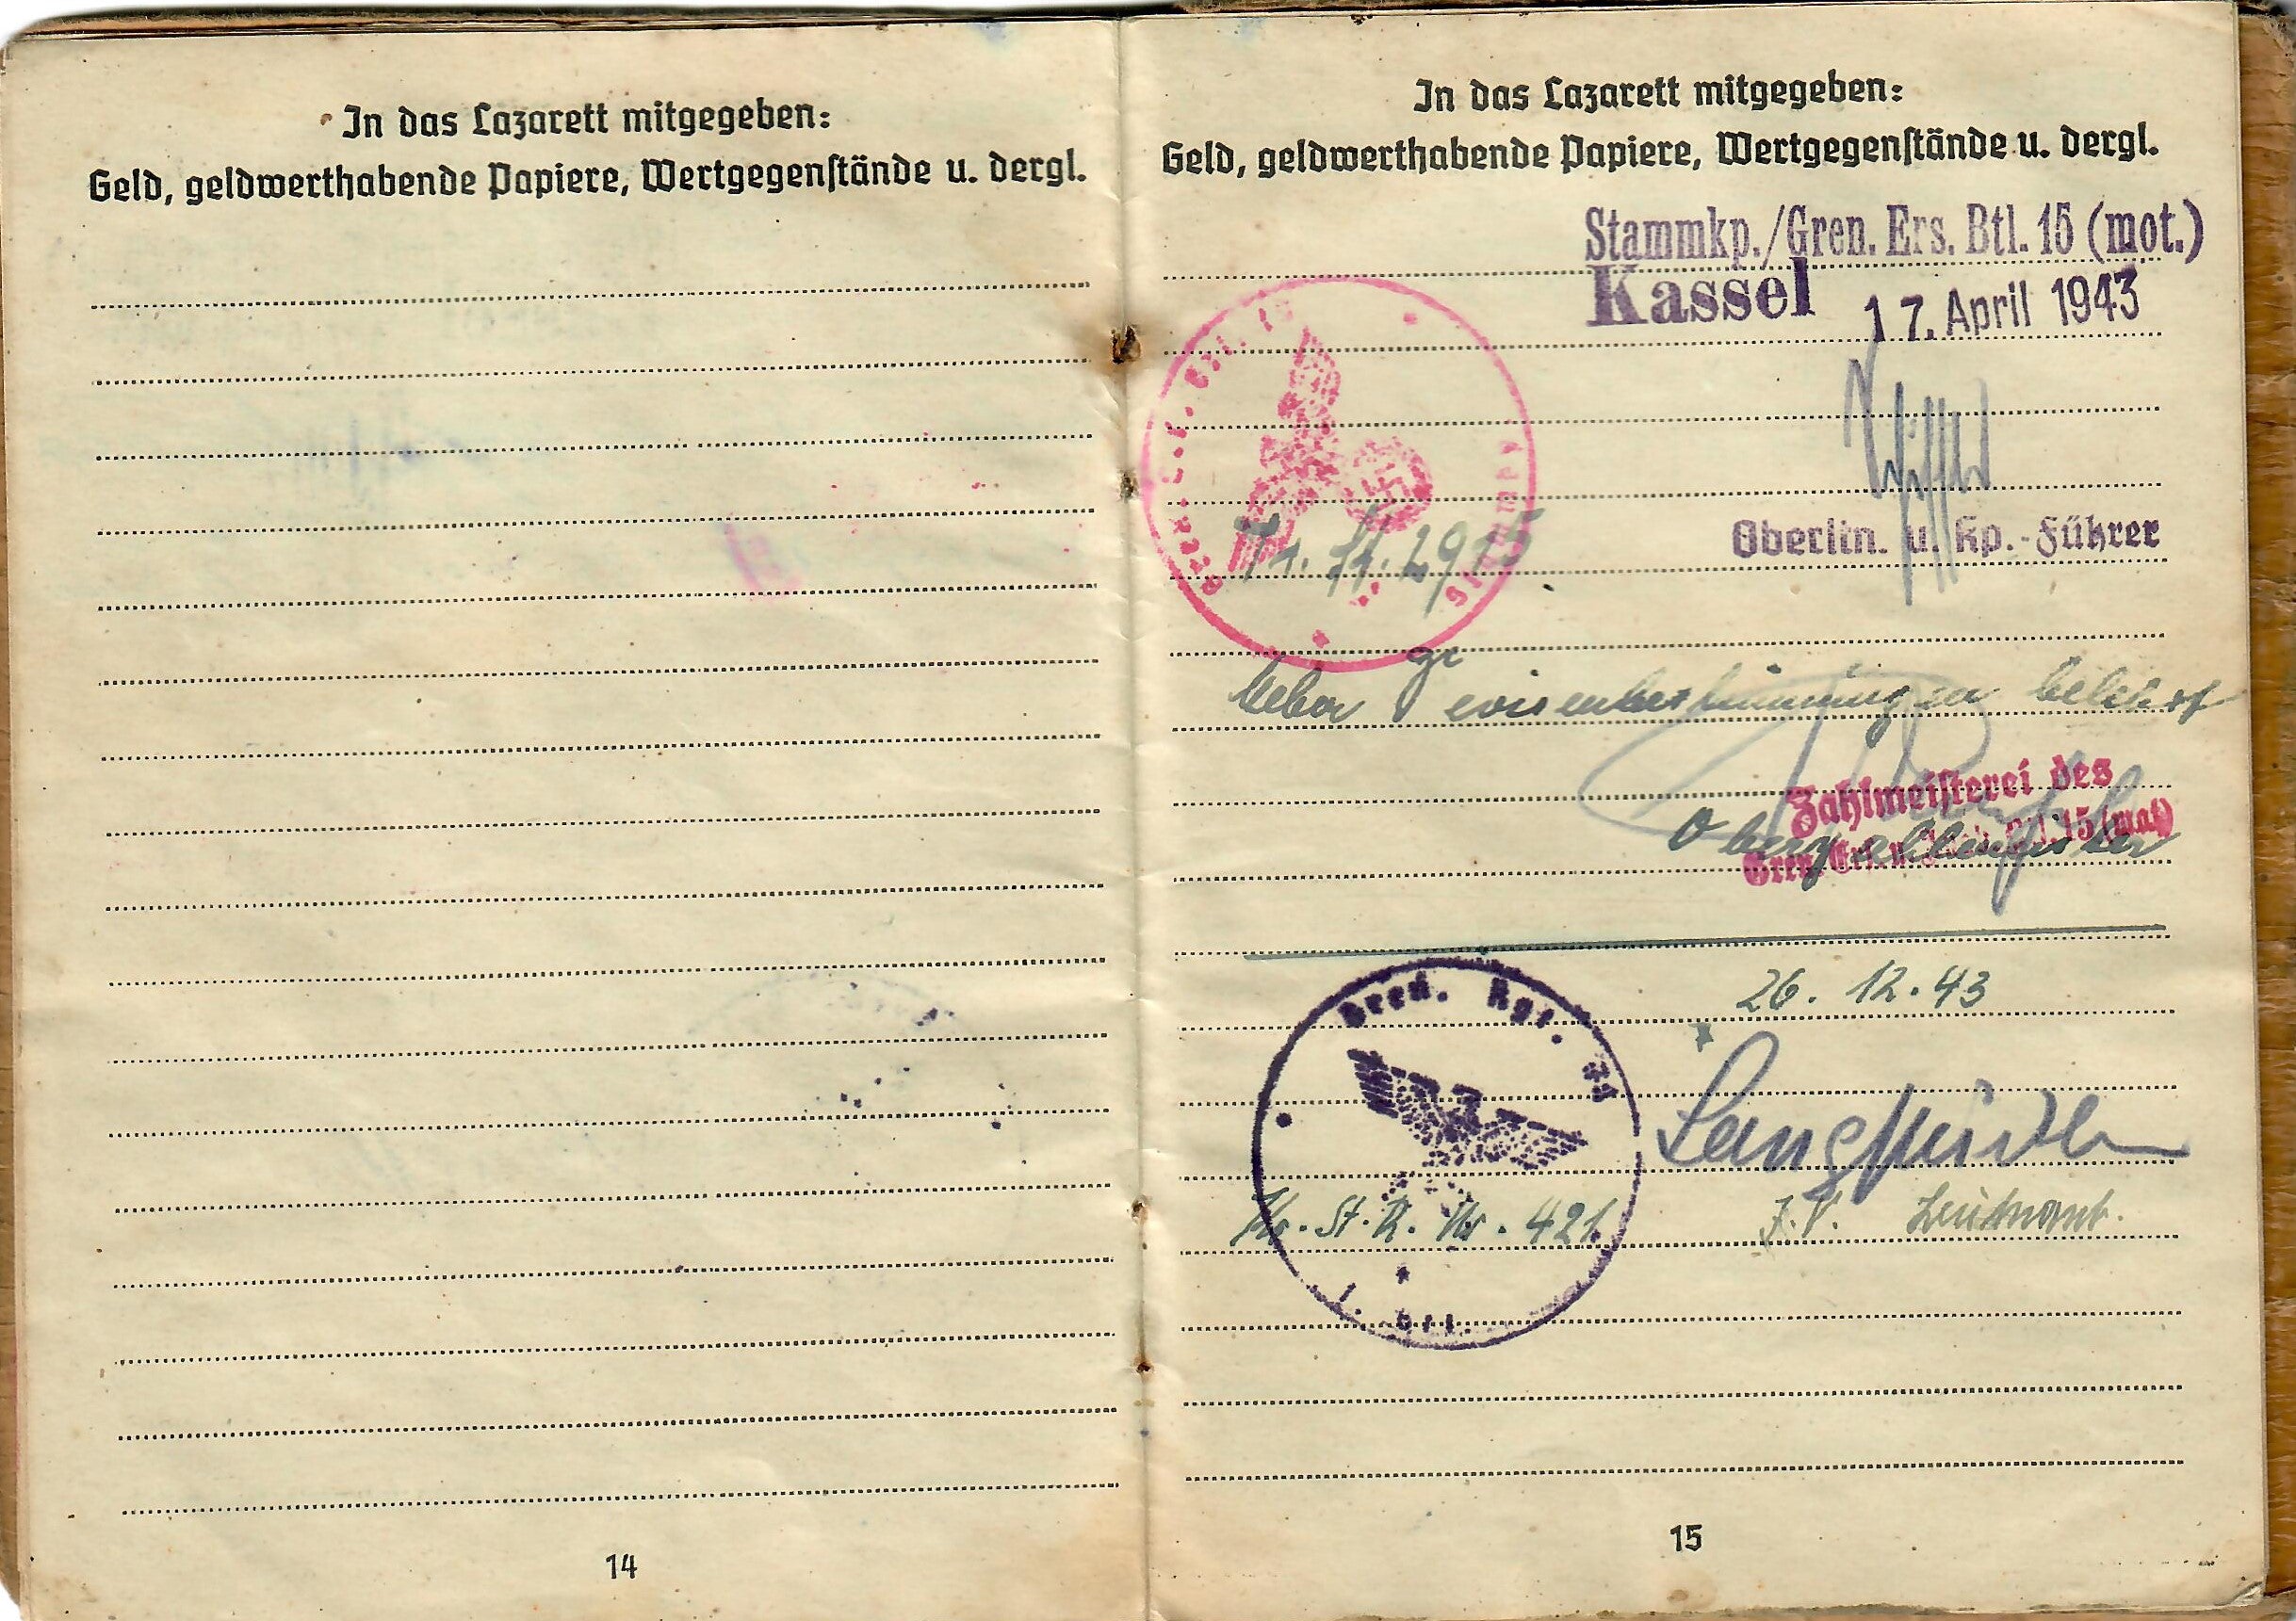 In das Lazarett mitgegeben:
Geld, geldwerthabende Papiere, Wertgegenstände u. dergl.
14
In das Lazarett mitgegeben:
Geld, geldwerthabende Papiere, Wertgegenstände u. dergl.
Stammkp./Gren. Ers. Btl. 15 (mot.)
Kassel 17. April 1943
Oberltn. u. Kp.-Führer
Ueber belehrt
Zahlmeisterei des
Oberzahlmeister
15 (mot)
26. 12. 43
Gren. Rgt.
J.V. Leutnant.
St. R. Nr. 421.
I. Btl.
15